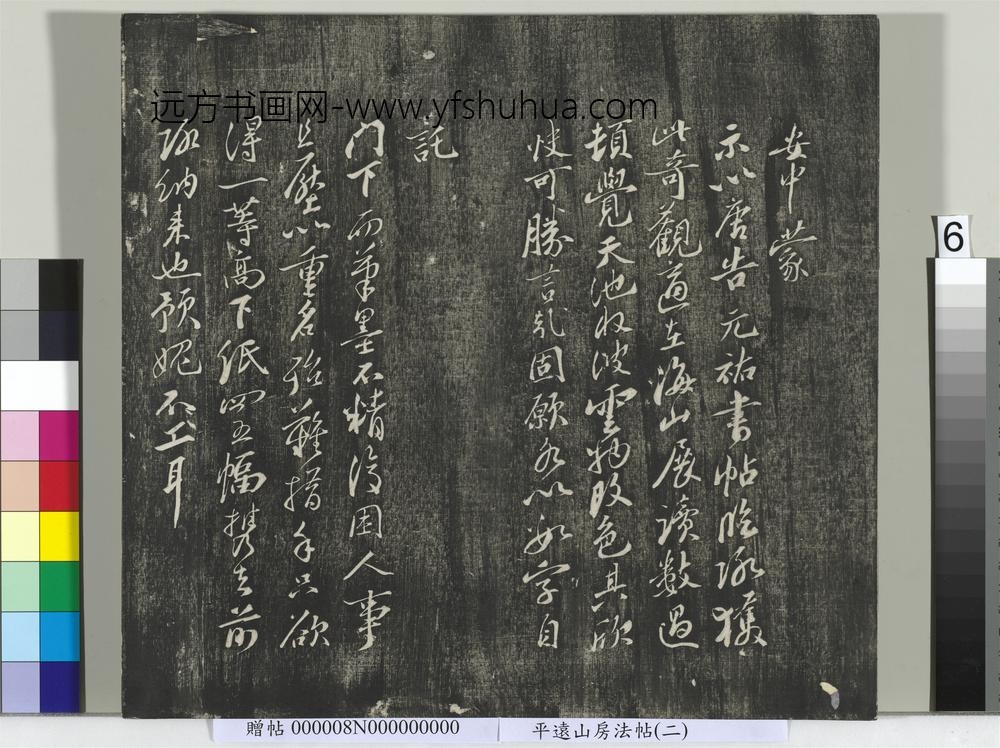 远方书画网-www.yfshuhua.com
安中蒙
示以唐告元祐書帖臨
此奇觀過在海山展讀數過
頓覺天池收波雲物改色其欣
快可勝言哉固願名以如字自
託
门下而筆墨不精復困人事
且歷以重名難措手只欲
得一等高下紙四五幅携去前
納来也預媿不工耳
6
贈帖 000008N000000000
平遠山房法帖(二)